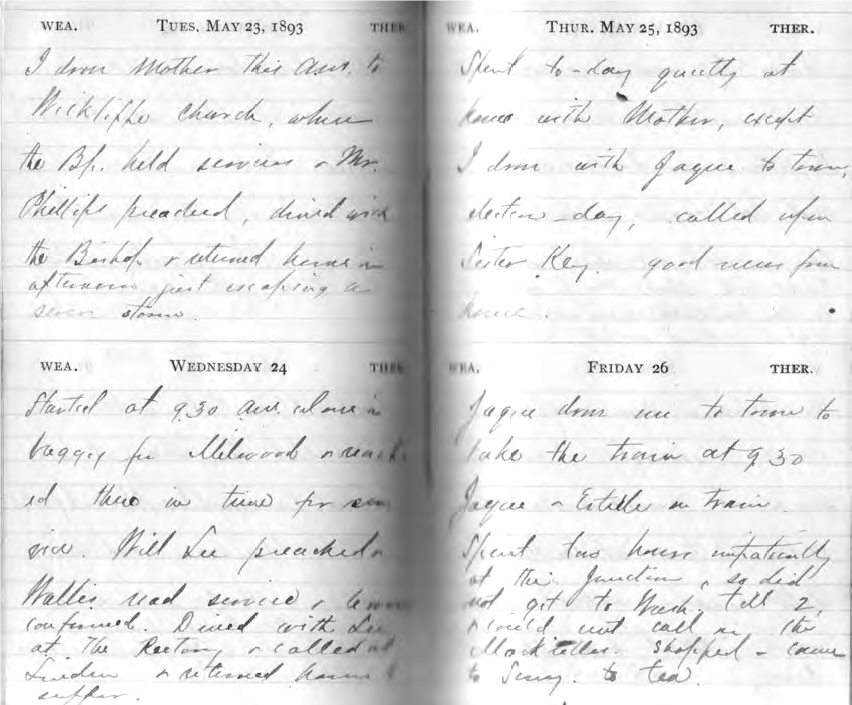 WEA. TUES. MAY 23, 1893 THER
I drove Mother this to
Wickliffe Church, where
the Bp. held services & Mr.
Phillips preached, dined with
the Bishop & returned home in
afternoon just escaping a
severe storm.
WEA. WEDNESDAY 24 THER
Started at 9.30 alone in
buggy for Milwood & reach
ed there in time for ser
vice. Will Lee preached &
Wallis read service &
confirmed. Dined with Lee
at The Rectory & called at
Linden & returned home to
supper.
WEA. THUR. MAY 25, 1893 THER.
Spent to-day quietly at
home with Mother, except
I drove with Jaquie to town,
election-day, called upon
Sister Key. good news from
home.
WEA. FRIDAY 26 THER.
Jaquie drove me to town to
take the train at 9.30
Jaquie & Estelle on train.
Spent two hours impatiently
at the Junction, so did
not get to Wash. till 2,
& could not call on the
shopped & came
to Semy. to tea.